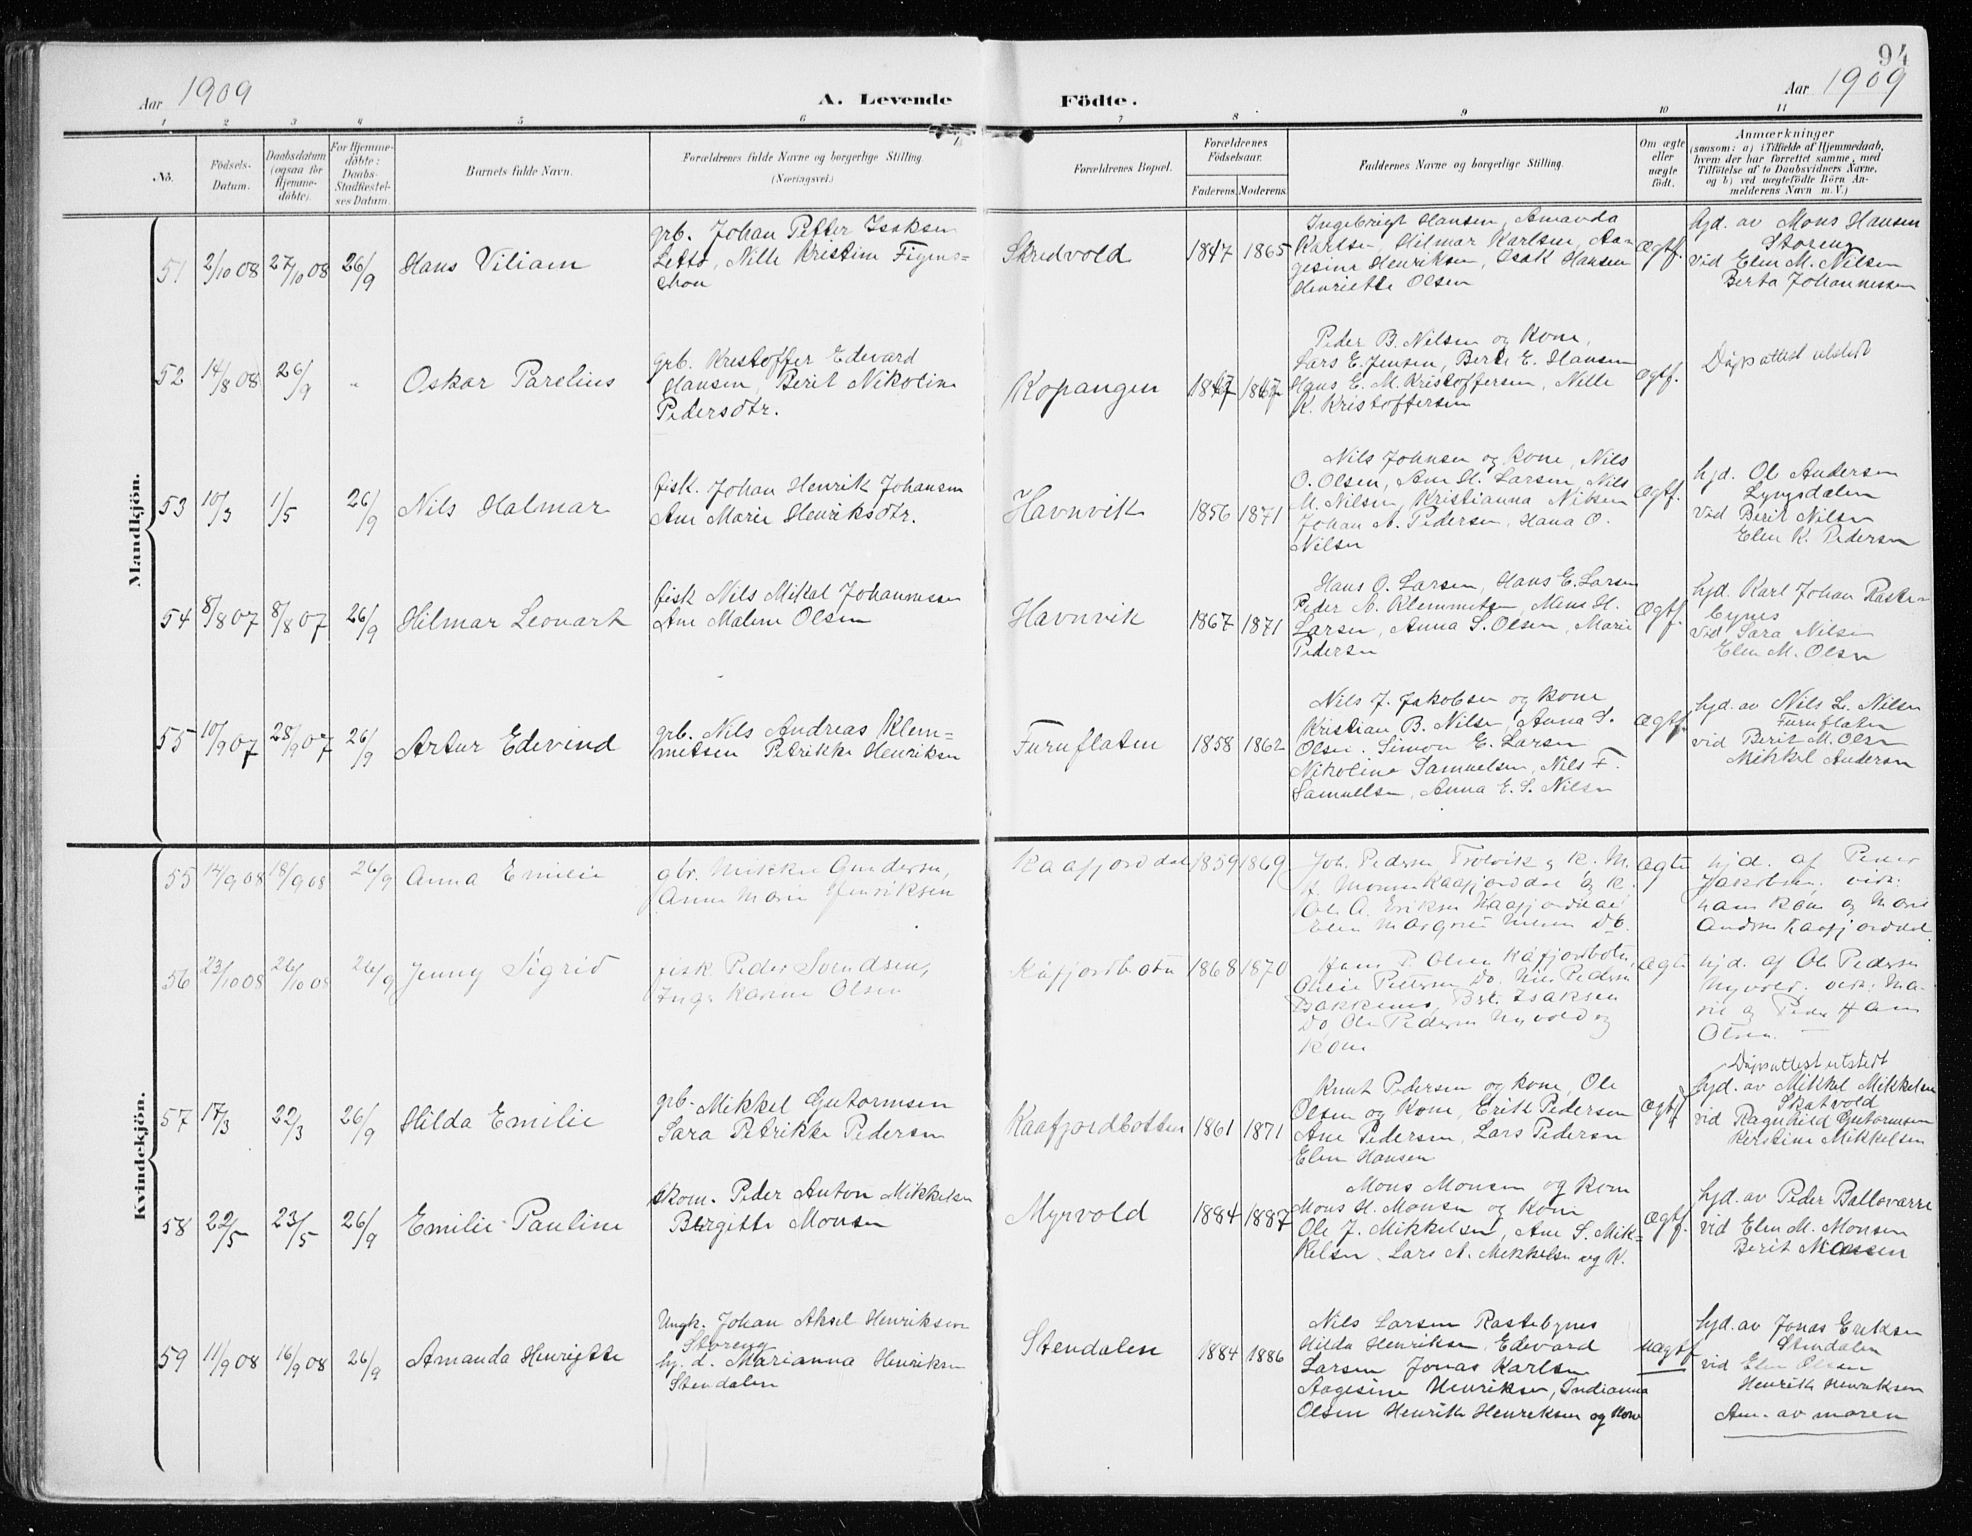 94
Aar 1909
A. Levende Födte.
Aar 1909
1 2 3 4 5 6 7 8 9 10 11
No.
Födsels-
Datum.
Daabsdatum
(ogsaa for
Hjemme-
döbte).
For Hjemme-
döbte:
Daabs-
Stadfæstel-
ses Datum.
Barnets fulde Navn.
Forældrenes fulde Navne og borgerlige Stilling.
(Næringsvei.)
Forældrenes Bopæl.
Forældrenes
Födselsaar.
Faderens. Moderens.
Faddernes Navne og borgerlige Stilling.
Om ægte
eller
uægte
födt.
Anmærkninger
(saasom: a) i Tilfælde af Hjemmedaab,
hvem der har forrettet samme, med
Tilföielse af to Daabsvidners Navne,
og b) ved uægtefödte Börn An-
melderens Navn m. V.)
Mandkjön.
51 2/10 08 27/10 08 26/9 Hans Viliam
grb. Johan Petter Isaksen
Letto, Nille Kristine Figens-
chou
Skredvold 1847 1865
Ingebrigt Hansen, Amanda
Karlsen, Hilmar Karlsen, Aa-
gesine Henriksen, Isak Hansen
Henriette Olsen
Ægtf.
hjd. av Mons Hansen
Storeng
vid Elen M. Nilsen
Berta Johannessen
52 14/8 08 26/9 " Oskar Parelius
grb. Kristoffer Edevard
Hansen, Berit Nikoline
Pedersdtr.
Kopangen 1847 1867
Peder B. Nilsen og Kone,
Lars E. Jensen, Berit E. Hansen
Hans E. M. Kristoffersen, Nille
K. Kristoffersen
Ægtf.
Dåpsattest utstedt
53 10/3 1/5 26/9 Nils Halmar
fisk. Johan Henrik Johansen
Ane Marie Henriksdtr.
Havnvik 1856 1871
Nils Johnsen og Kone, Nils
O. Olsen, Ane H. Larsen, Nils
M. Nilsen, Kristianna Nilsen
Johan A. Pedersen, Hana O.
Nilsen
Ægtf.
hjd. Ole Andersen
Lyngsdalen
vid Berit Nilsen
Elen K. Pedersen
54 8/8 07 8/8 07 26/9 Hilmar Leonart
fisk Nils Mikal Johannessen
Ane Malene Olsen
Havnvik 1867 1871
Hans O. Larsen, Hans E. Larsen
Peder A. Klemmetsen, Mons H.
Larsen, Anna S. Olsen, Marie
Pedersen
Ægtf.
hjd. Karl Johan Raste-
bynes
vid Sara Nilsen
Elen M. Olsen
55 10/9 07 28/9 07 26/9 Artur Edevind
grb. Nils Andreas Klem-
metsen Petrikke Henriksen
Furuflaten 1858 1862
Nils J. Jakobsen og Kone
Kristian B. Nilsen, Anna S.
Olsen. Simon E. Larsen
Nikoline Samuelsen, Nils F.
Samuelsen, Anna E. S. Nilsen
Ægtf.
hjd. av Nils L. Nilsen
Furuflaten
vid Berit M. Olsen
Mikkel Andersen
Kvindekjön.
55 14/9 08 18/9 08 26/9 Anna Emilie
gbr. Mikkel Gundersen,
Anne Marie Henriksen
Kaafjorddal 1859 1869
Joh. Pedersen Trolvik og K. M.
Kaafjorddal og K.
Ole A. Eriksen Kaafjorddal
Elen Margret Nilsen Do.
Ægte
hjd. af Peder
Jakobsen. vid:
hans Kone og Marie
Anders Kaafjorddal.
56 23/10 08 26/10 08 26/9 Jenny Sigrid
fisk Peder Svendsen,
Inger Karine Olsen
Kåfjordbotn 1868 1870
Hans P. Olsen Kåfjordbotn,
Olufe Petersen Do. Nils Pedersen
Bakkenes, Brt. Isaksen
Do Ole Pedersen Myvold og
Kone
Ægte
hjd. af Ole Pedersen
Myvold. vid: Ma-
rie og Peder Hans
Olsen.
57 17/3 22/3 26/9 Hilda Emilie
grb. Mikkel Gutormsen
Sara Petrikke Pedersen
Kaafjordbotten 1861 1871
Knut Pedersen og Kone, Ole
Olsen og Kone, Erik Pedersen
Ane Pedersen, Lars Pedersen
Elen Hansen
Ægtf.
Dåpsattest utstedt
hjd. av Mikkel Mikkelsen
Skatvold
vid Ragnhild Gutormsen
Kerstine Mikkelsen
58 22/5 23/5 26/9 Emilie Pauline
skom. Peder Anton Mikkelsen
Birgitte Monsen
Myrvold 1884 1887
Mons Monsen og Kone
Mons H. Monsen og Kone
Ole J. Mikkelsen, Ane S. Mik-
kelsen, Lars A. Mikkelsen og K.
Ægtf.
hjd. av Peder Ballovarre
vid Elen M. Monsen
Berit Monsen
59 11/9 08 16/9 08 26/9 Amanda Henrijtte
Ungk. Johan Aksel Henriksen
Storeng
hj. d. Marianna Henriksen
Stendalen
Stendalen 1884 1886
Nils Larsen Rastebynes
Hilda Henriksen, Edevard
Larsen Jonas Karlsen
Aagesine Henriksen, Indianna
Olsen Henrik Henriksen og Kone
uægtf
hjd. av Jonas Eriksen
Stendalen
vid Elen Olsen
Henrik Henriksen
Am. av moren